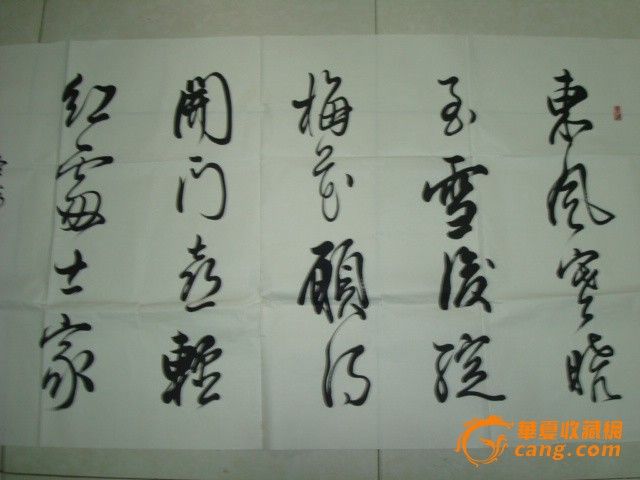 東風寒曉
至雪後綻
梅花願得
開門喜輕
紅霞士家
華夏收藏網
cang.com